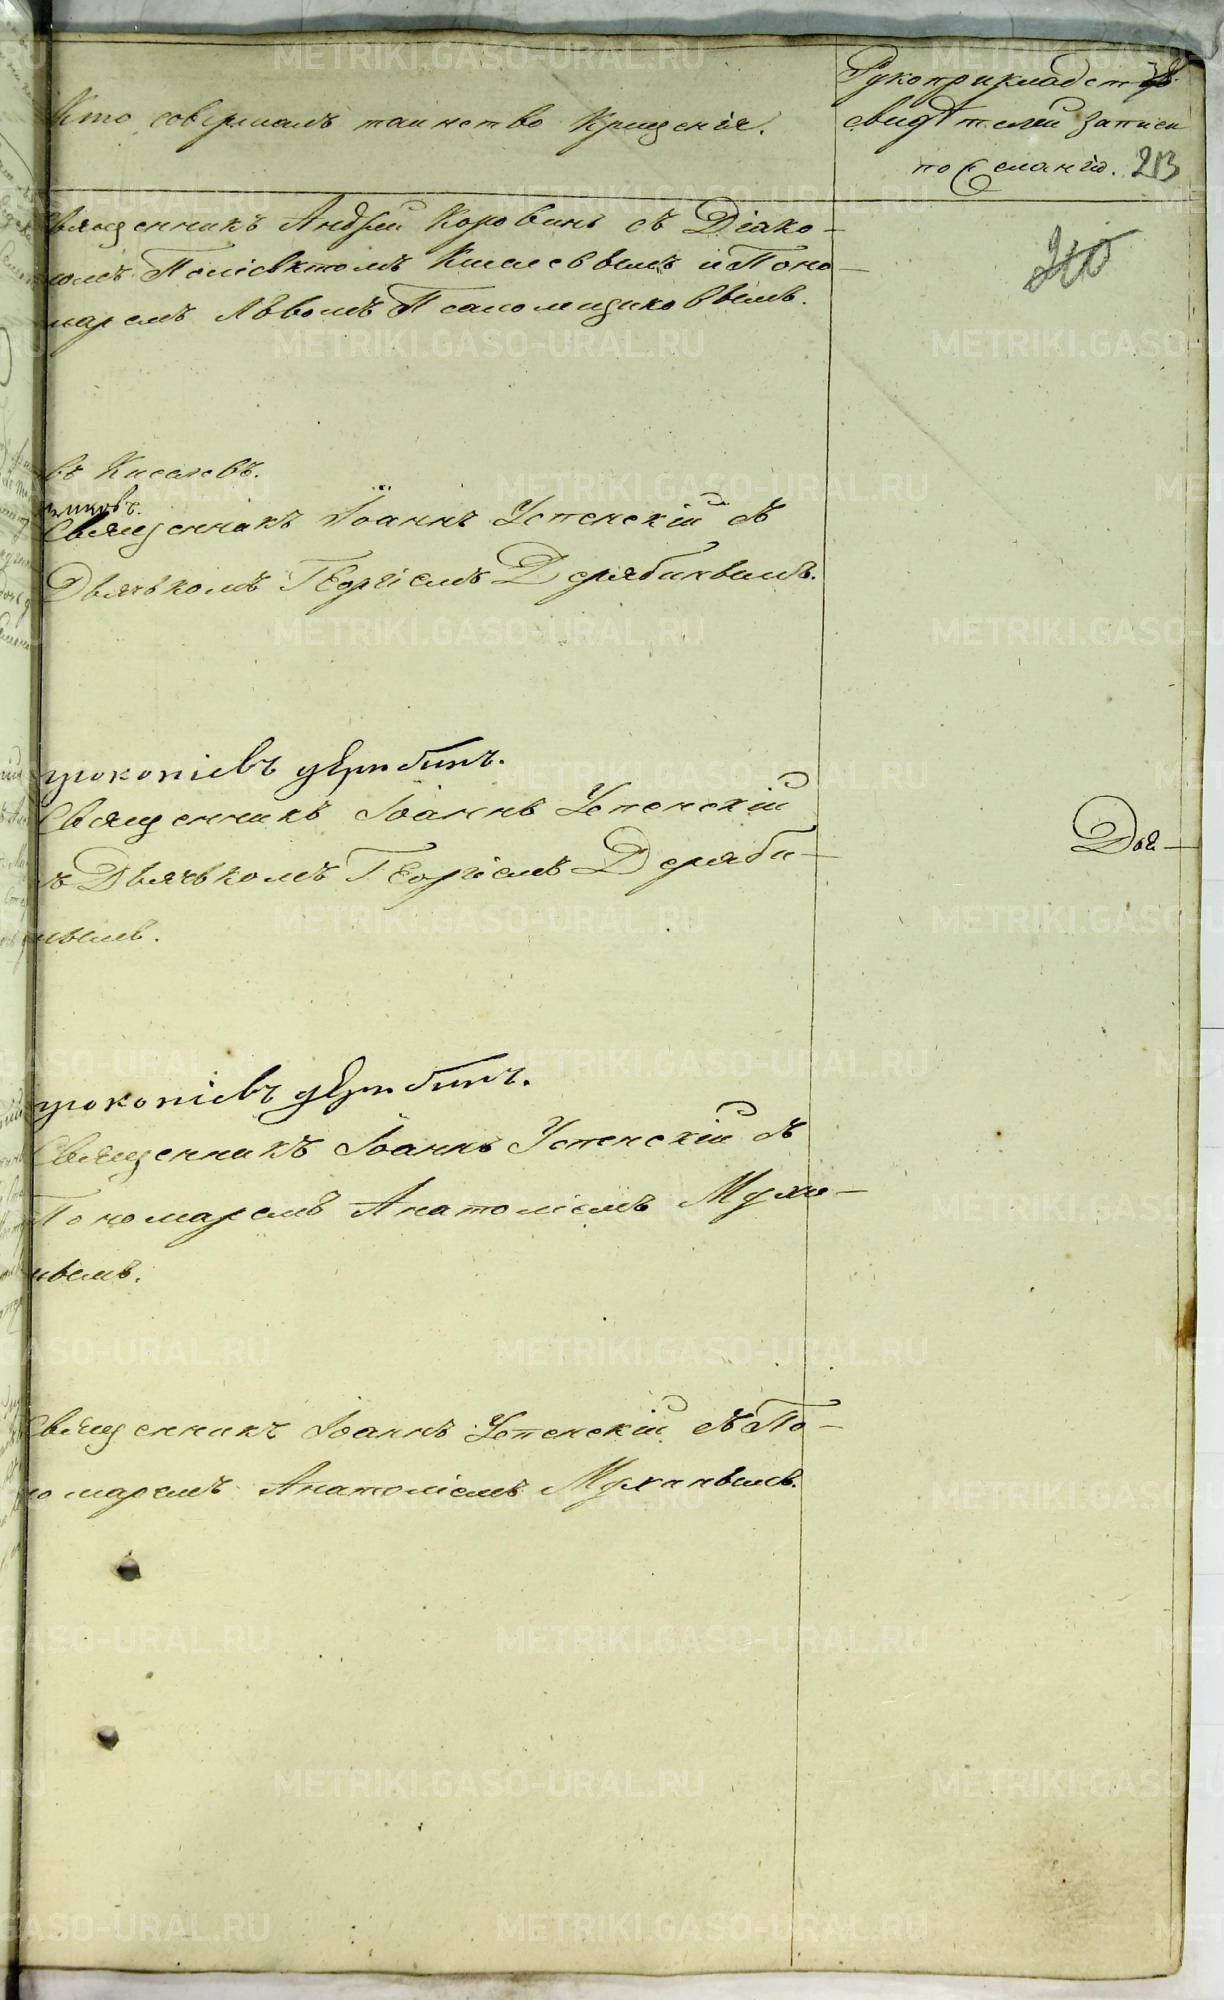 Кто совершалъ таинство Крещенія.
Рукоприкладство
свидѣтелей записи
по желанію. 213
Священникъ Андрей Коровинъ съ Діако-
номъ Поліевктомъ Киселевымъ и Поно-
маремъ Львомъ Псаломщиковымъ.
въ Киселевъ.
щиковъ.
Священникъ Іоаннъ Успенскій съ
Дьячькомъ Георгіемъ Дерябинымъ.
прокопіевъ дерябинъ.
Священникъ Іоаннъ Успенскій
съ Дьячькомъ Георгіемъ Деряби-
нымъ.
Дья-
прокопіевъ дерябинъ.
Священникъ Іоаннъ Успенскій съ
Пономаремъ Анатоліемъ Мухи-
нымъ.
Священникъ Іоаннъ Успенскій съ По-
номаремъ Анатоліемъ Мухинымъ.
METRIKI.GASO-URAL.RU